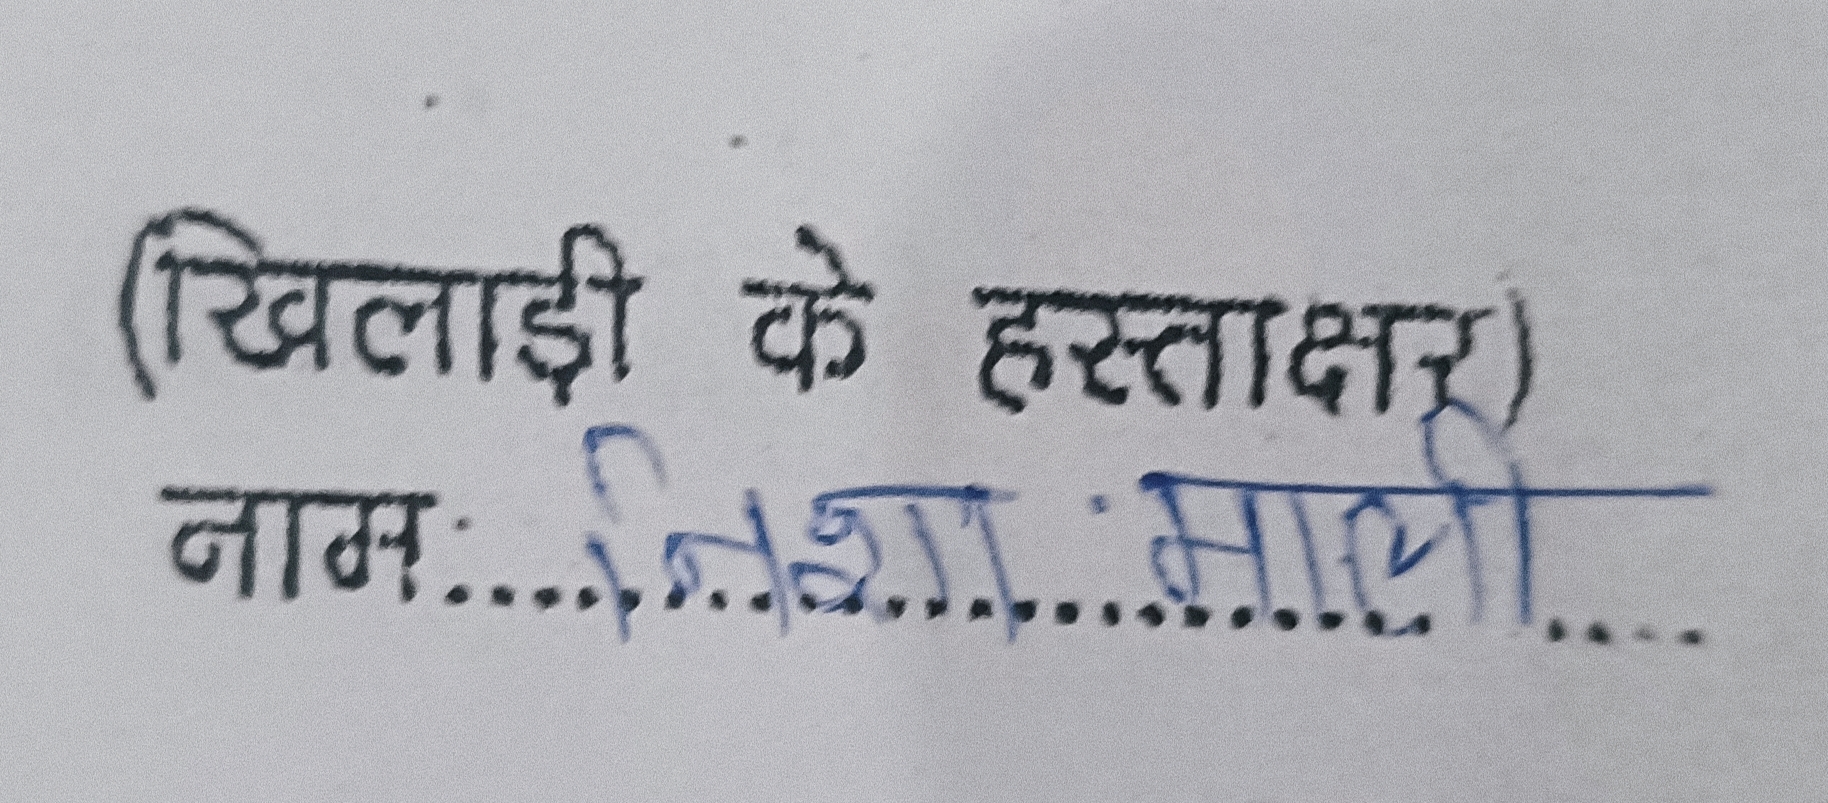 (खिलाड़ी के हस्ताक्षर)
नाम:....निशा माली....